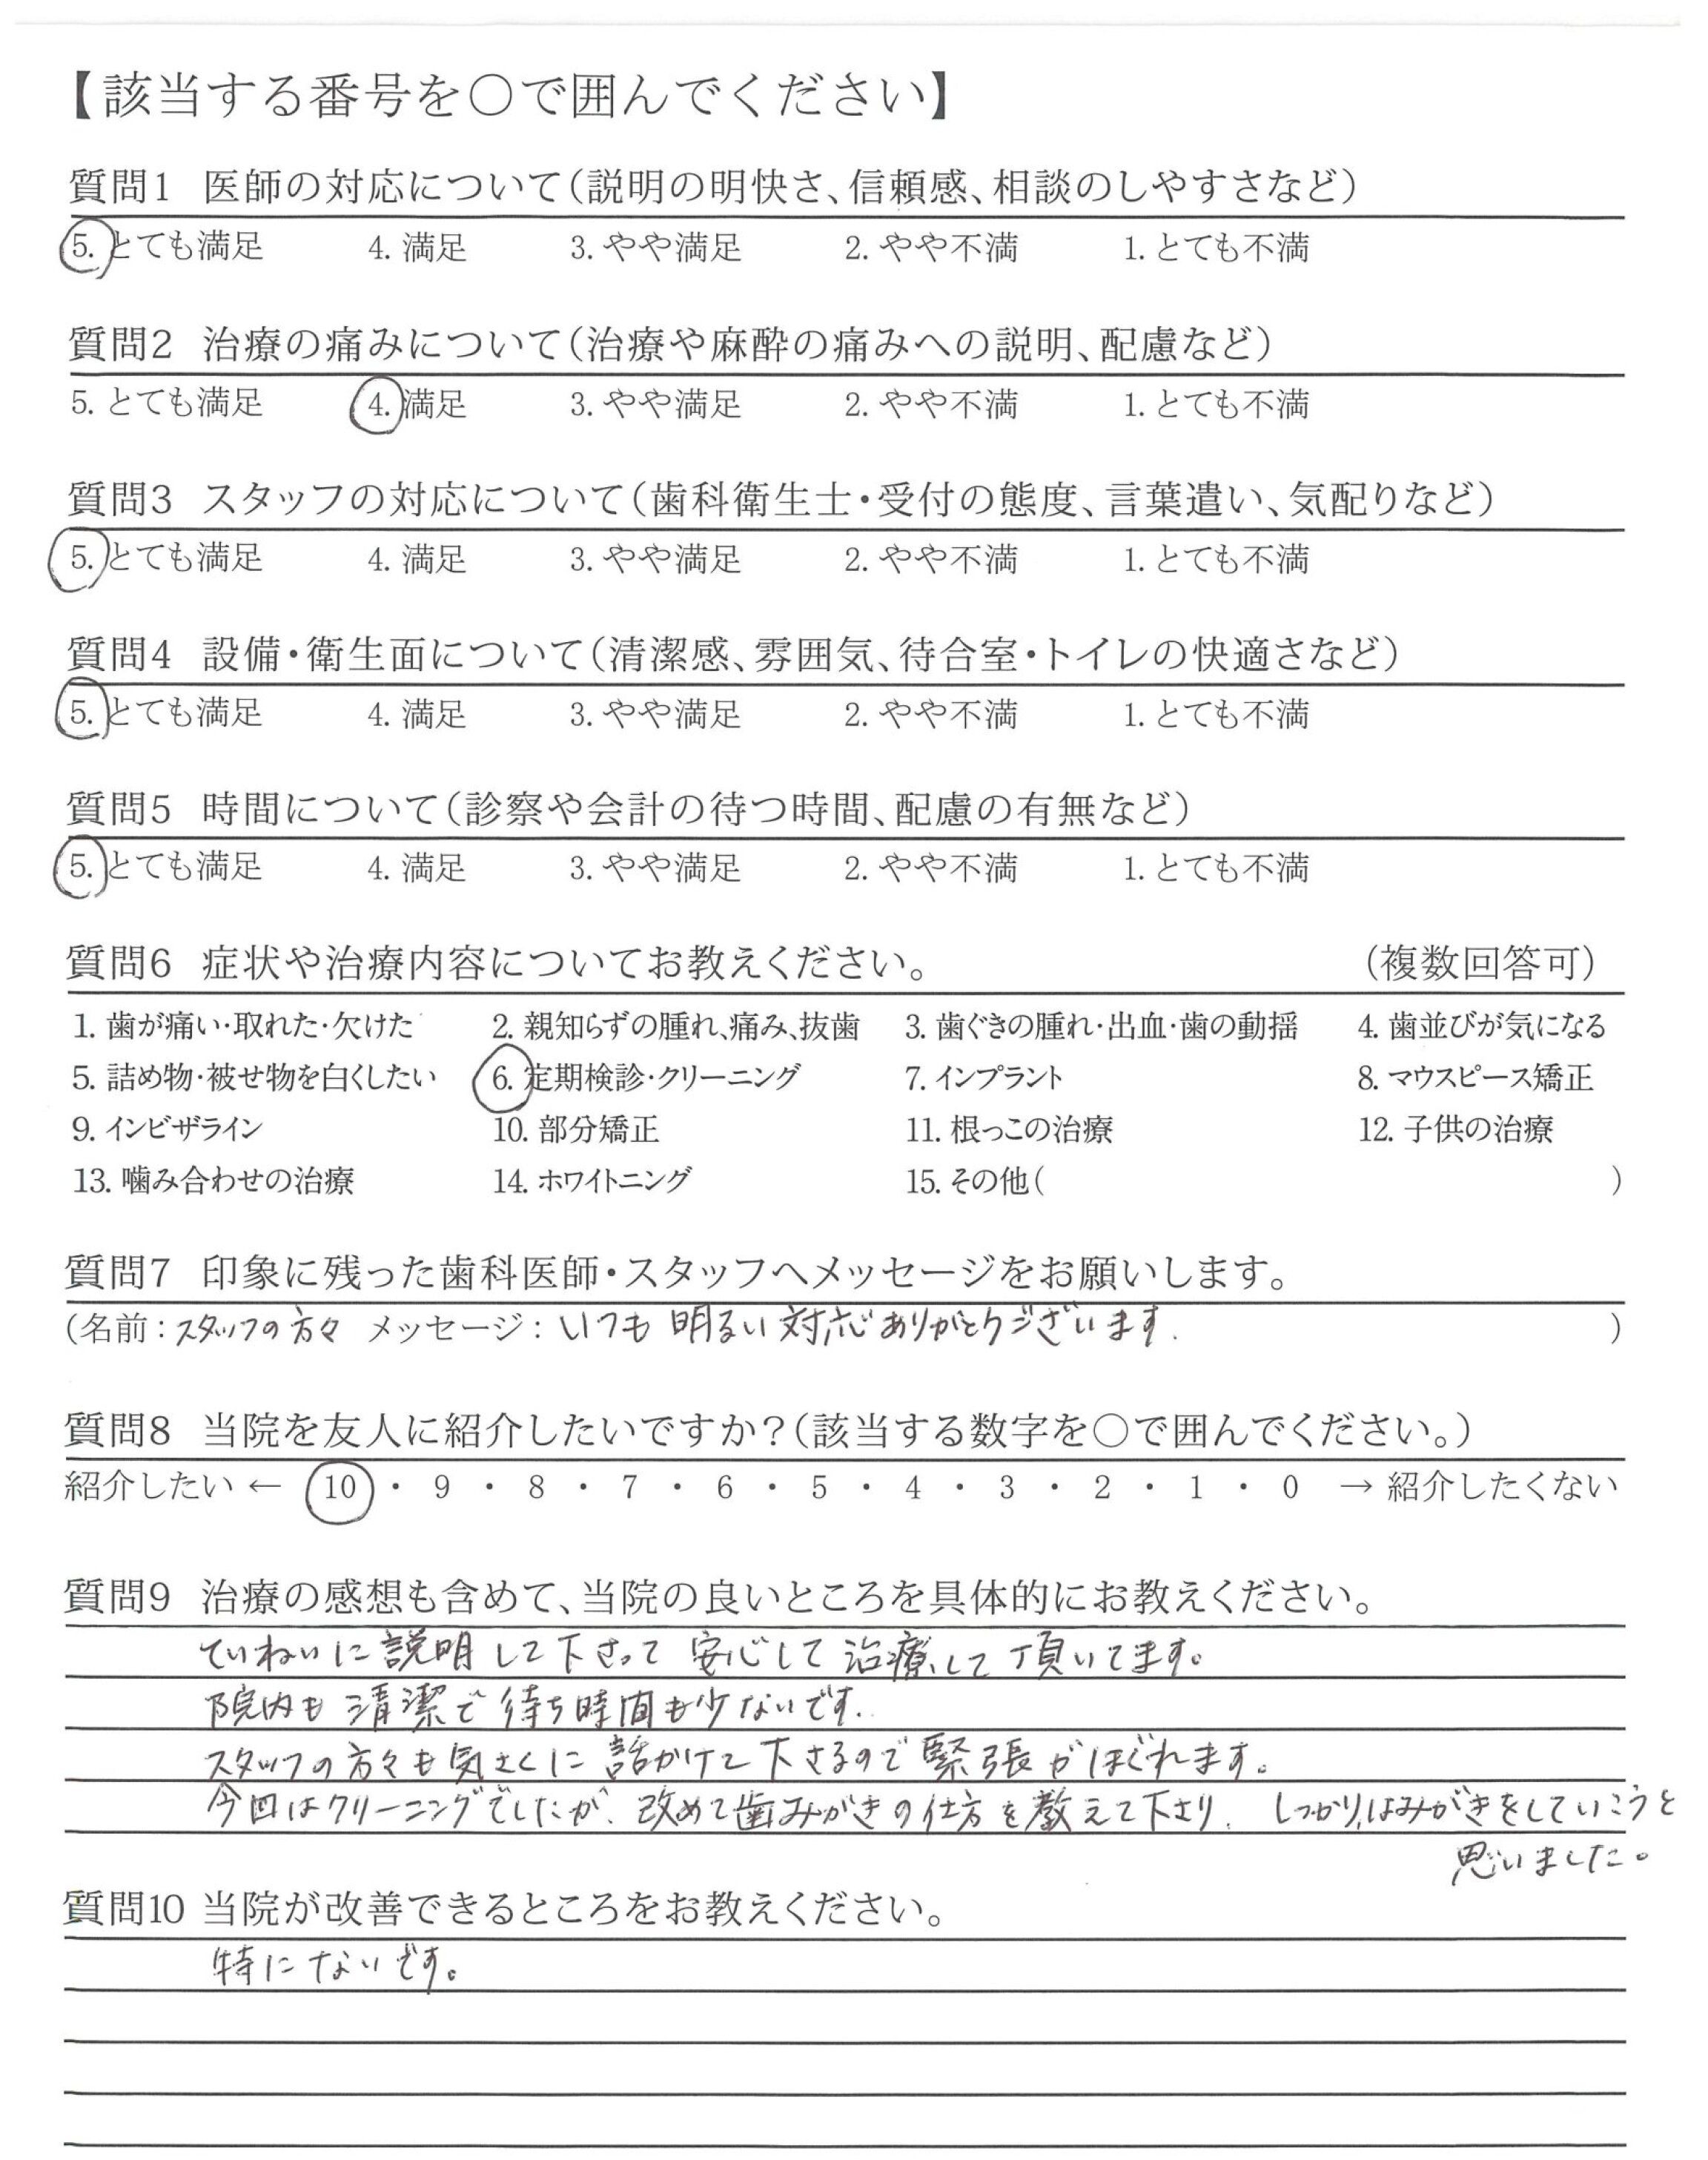 【該当する番号を○で囲んでください】
質問1 医師の対応について(説明の明快さ、信頼感、相談のしやすさなど)
5. とても満足 4. 満足 3. やや満足 2. やや不満 1. とても不満
質問2 治療の痛みについて(治療や麻酔の痛みへの説明、配慮など)
5. とても満足 4. 満足 3. やや満足 2. やや不満 1. とても不満
質問3 スタッフの対応について(歯科衛生士・受付の態度、言葉遣い、気配りなど)
5. とても満足 4. 満足 3. やや満足 2. やや不満 1. とても不満
質問4 設備・衛生面について(清潔感、雰囲気、待合室・トイレの快適さなど)
5. とても満足 4. 満足 3. やや満足 2. やや不満 1. とても不満
質問5 時間について(診察や会計の待つ時間、配慮の有無など)
5. とても満足 4. 満足 3. やや満足 2. やや不満 1. とても不満
質問6 症状や治療内容についてお教えください。 (複数回答可)
1. 歯が痛い・取れた・欠けた 2. 親知らずの腫れ、痛み、抜歯 3. 歯ぐきの腫れ・出血・歯の動揺 4. 歯並びが気になる
5. 詰め物・被せ物を白くしたい 6. 定期検診・クリーニング 7. インプラント 8. マウスピース矯正
9. インビザライン 10. 部分矯正 11. 根っこの治療 12. 子供の治療
13. 噛み合わせの治療 14. ホワイトニング 15. その他( )
質問7 印象に残った歯科医師・スタッフへメッセージをお願いします。
(名前:スタッフの方々 メッセージ:いつも明るい対応ありがとうございます. )
質問8 当院を友人に紹介したいですか?(該当する数字を○で囲んでください。)
紹介したい ← 10 ・ 9 ・ 8 ・ 7 ・ 6 ・ 5 ・ 4 ・ 3 ・ 2 ・ 1 ・ 0 → 紹介したくない
質問9 治療の感想も含めて、当院の良いところを具体的にお教えください。
ていねいに説明して下さって安心して治療して頂いてます。
院内も清潔で待ち時間も少ないです.
スタッフの方々も気さくに話かけて下さるので緊張がほぐれます。
今回はクリーニングでしたが、改めて歯みがきの仕方を教えて下さり、しっかりはみがきをしていこうと
思いました。
質問10 当院が改善できるところをお教えください。
特にないです。